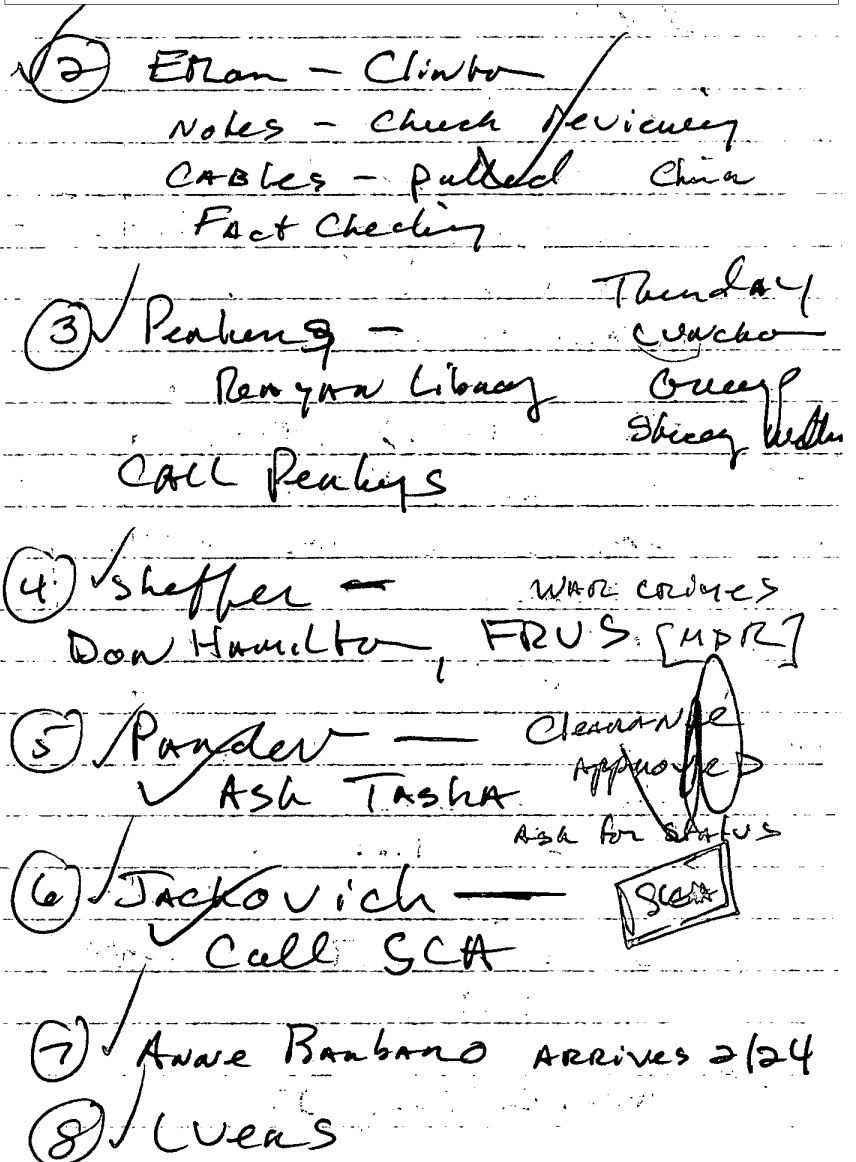 ② Ethan – Clinton
Notes – Check Reviewing
CABles – pulled China
FAct Checking
③ Perkins –
Thursday
Luncheon
Reagan Library
George
CALL Perkins
④ Sheffer – WAR CRIMES
Don Hamilton, FRUS [MDR]
⑤ Pander — CleARANCE
APPROVED
Ask TASHA
Ask for STATUS
⑥ JACKovich —
Call SCA
⑦ Anne BARbARO ARRives 2/24
⑧ Lucas